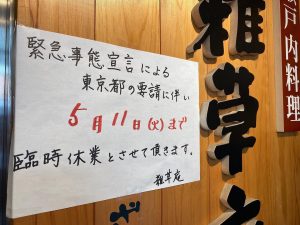 緊急事態宣言による
東京都の要請に伴い
5月11日(火)まで
臨時休業とさせて頂きます。
雑草庵
雑草
戸内料理